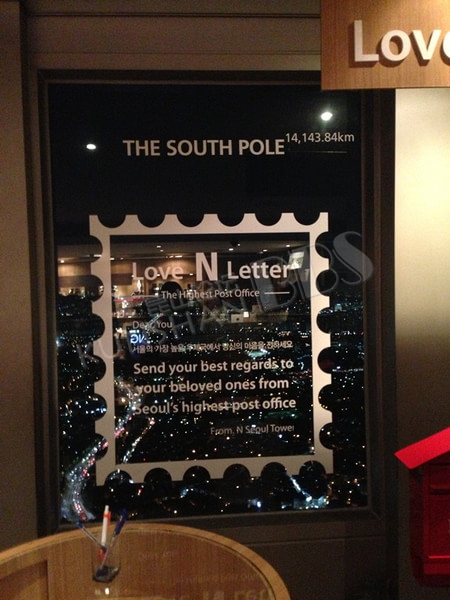 Love
THE SOUTH POLE 14,143.84km
Love N Letter
The Highest Post Office
Dear. You
서울의 가장 높은 우체국에서 당신의 마음을 전하세요
Send your best regards to
your beloved ones from
Seoul's highest post office
From. N Seoul Tower